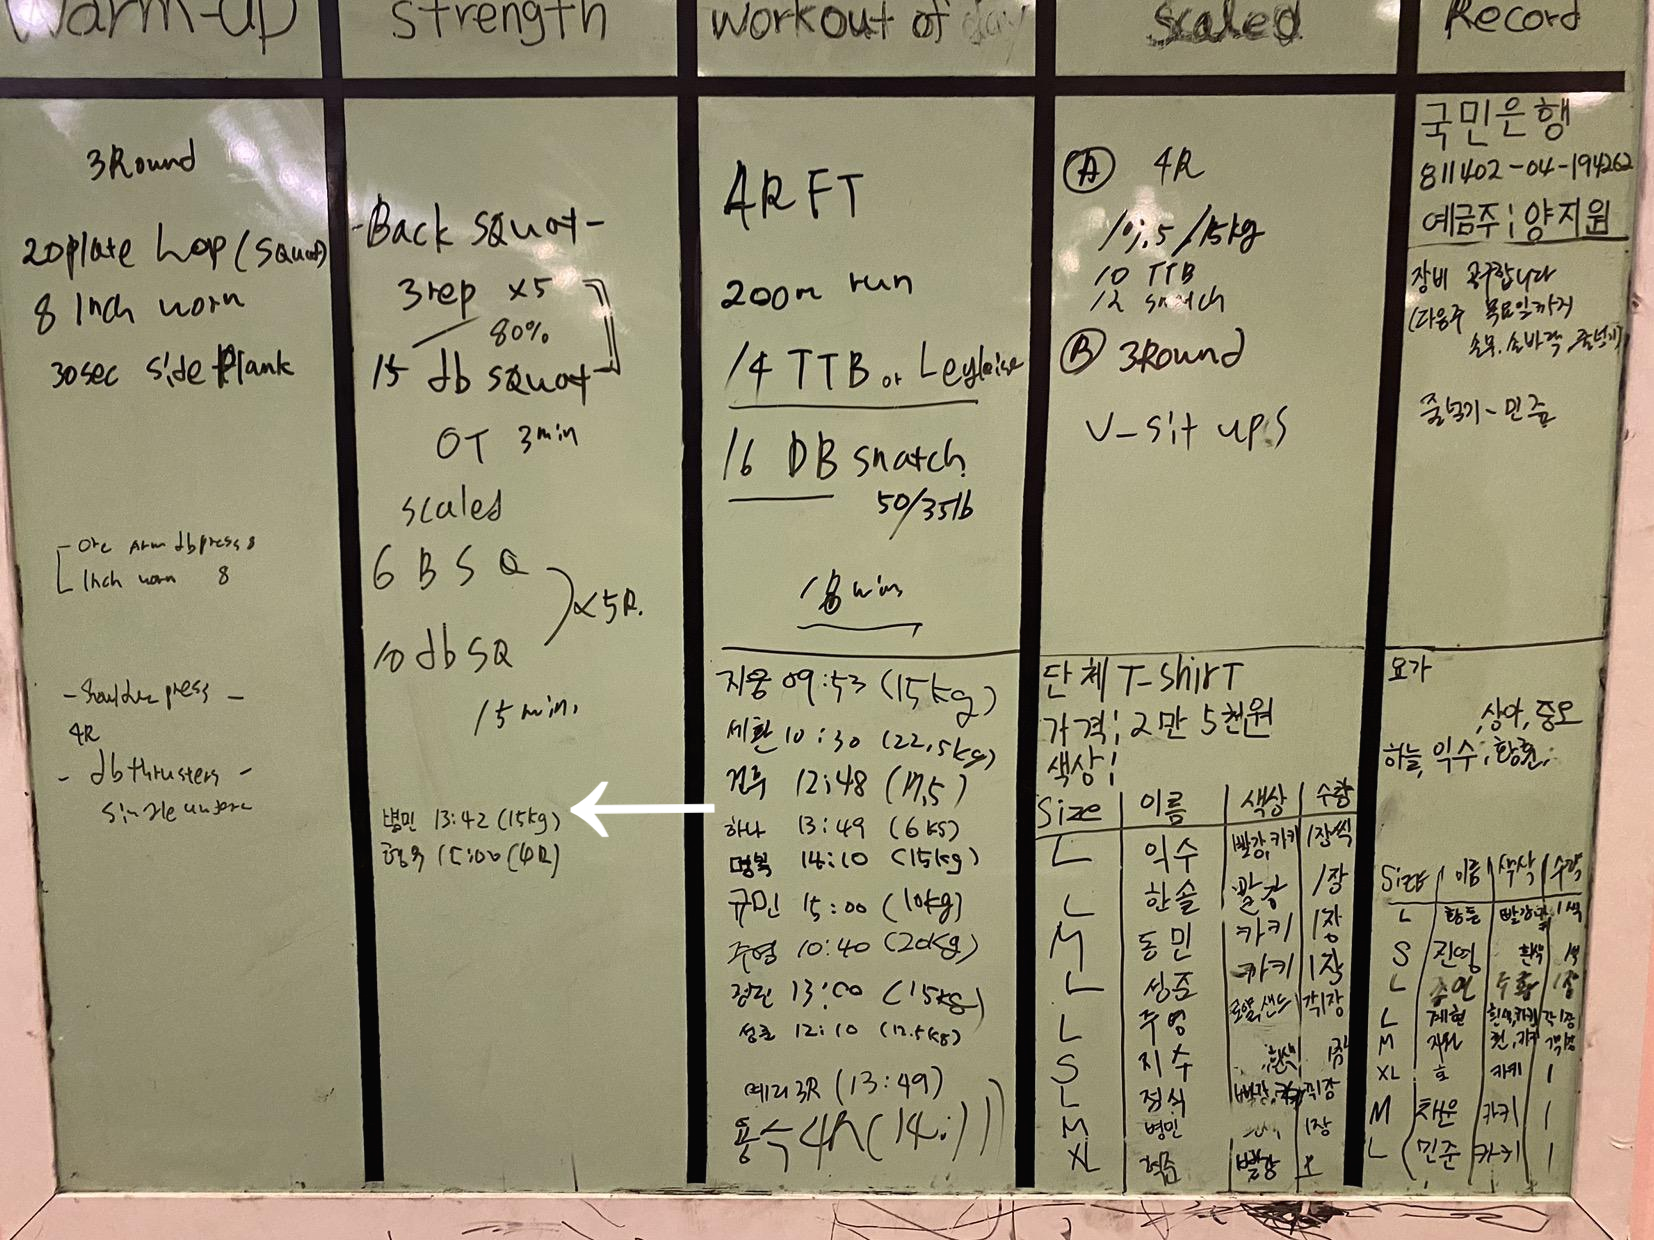 Warm-up
3Round
20plate hop (squat)
8 Inch worm
30sec side Plank
- One Arm db press 8
Inch worm 8
- Shoulder press -
4R
- db thrusters -
Strength
-Back squat-
3rep x5
80%
15 db squat
OT 3min
scaled
6 B S Q
x5R.
10 db SQ
15min.
병민 13:42 (15kg)
15:00 (4R)
Workout of day
4R FT
200m run
14 TTB or Legraise
16 DB snatch
50/35lb
18min
지웅 09:53 (15kg)
세환 10:30 (22.5kg)
건우 12:48 (17.5)
하나 13:49 (6kg)
14:10 (15kg)
규민 15:00 (10kg)
주영 10:40 (20kg)
13:00 (15kg)
12:10 (12.5kg)
예리 3R (13:49)
용수 4R (14:11)
Scaled
Ⓐ 4R
/15kg
10 TTB
12 snatch
Ⓑ 3Round
V-sit ups
단체 T-shirT
가격; 2만 5천원
색상;
Size 이름 색상 수량
L 익수 빨강,카키 1장씩
L 한솔 빨강 1장
M 동민 카키 1장
L 성준 카키 1장
L 주영 로얄,샌드 각1장
S 지수 흰색 1장
L 정식 빨강, 각1장
M 병민 1장
XL 빨강
Record
국민은행
811402-04-194262
예금주; 양지원
장비 공구합니다
(다음주 목요일까지
손목, 손바닥, 줄넘기)
줄넘기 - 민준
요가
,상아,
하늘, 익수;
Size 이름 색상 수량
L
S 진영 흰색
L 1장
L 흰색,카키
M
XL 호 카키 1
M 채운 카키 1
L 민준 카키 1